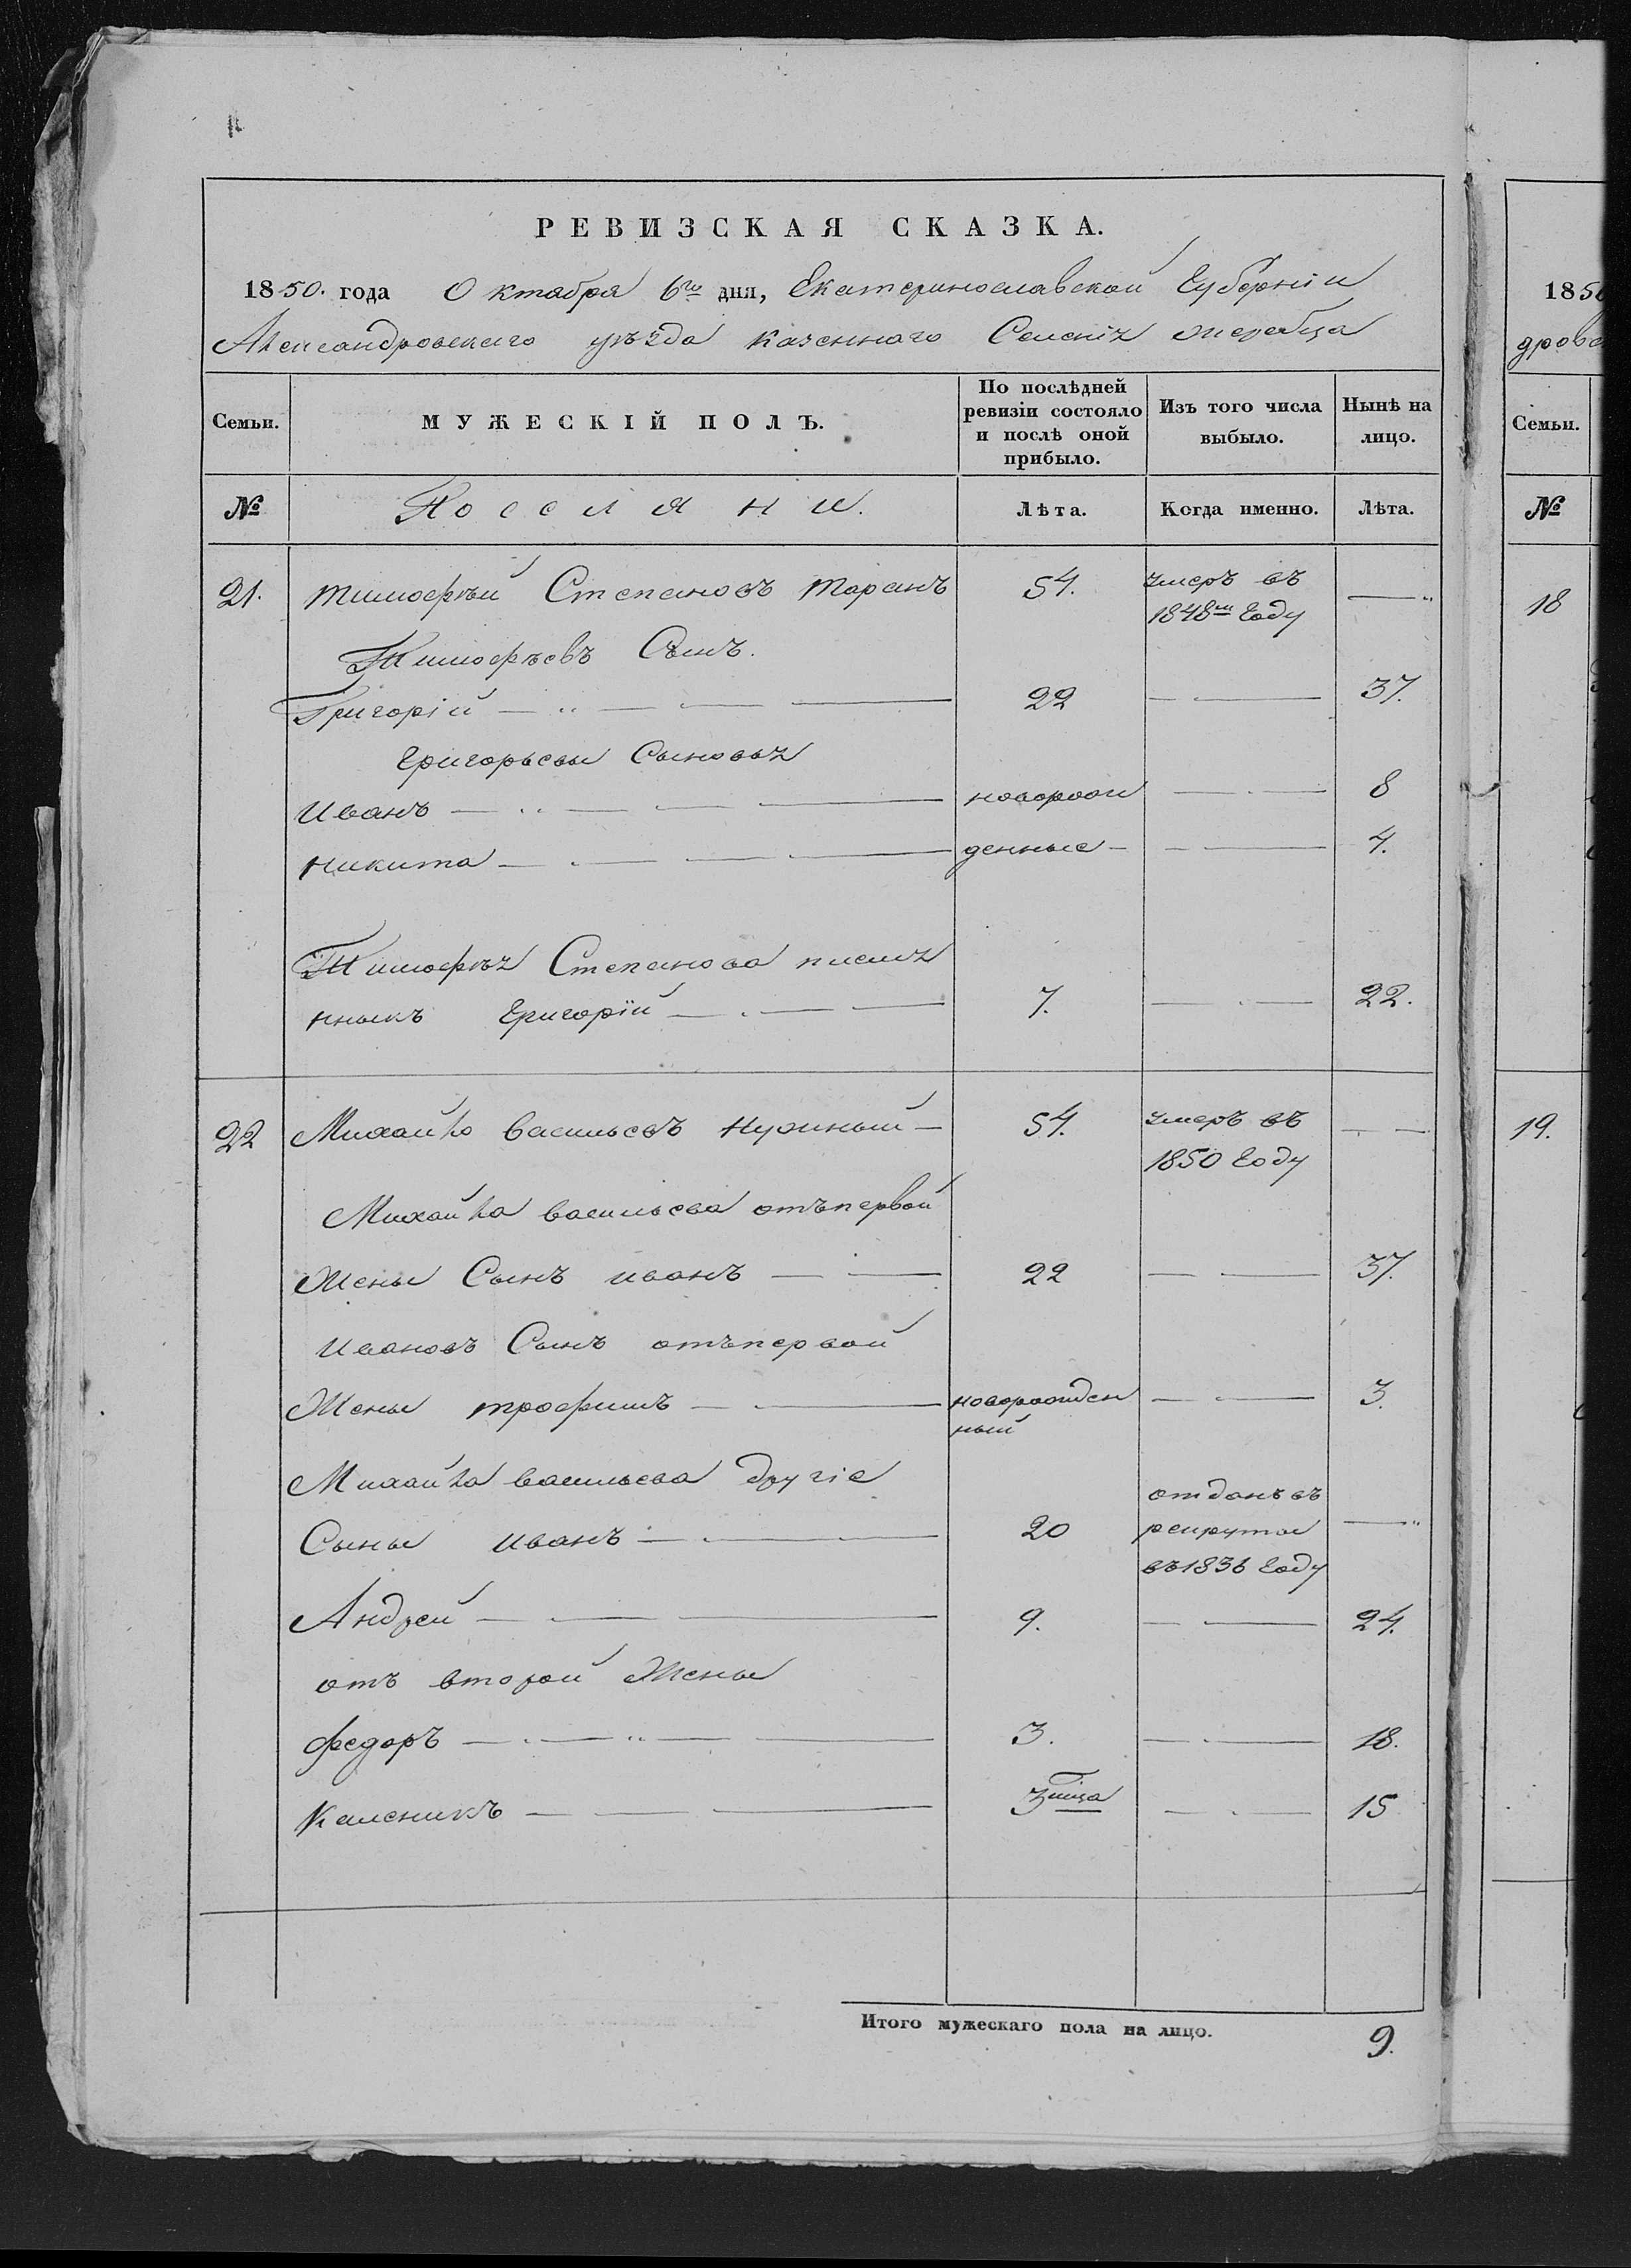 РЕВИЗСКАЯ СКАЗКА.
1850. года Октября 6го дня, Екатеринославской Губерніи
Александровскаго уѣзда казеннаго Селенія жеребца
Семьи.
МУЖЕСКІЙ ПОЛЪ.
По послѣдней ревизіи состояло и послѣ оной прибыло.
Изъ того числа выбыло.
Нынѣ на лицо.
№ Поселяни. Лѣта. Когда именно. Лѣта.
21. тимофѣй Степановъ таранъ 54. умеръ въ —„
1848м Году
Тимофѣевъ Сынъ.
Григорій — „ — — — 22 — — 37.
Григорьевы Сыновья
Иванъ — „ — — — новорож — . — 8
никита — . — — — денные — — — 4.
Тимофѣя Степанова племя
нныкъ Григорій — . — — 7. — . — 22.
22 Михайло васильевъ — 54. умеръ въ — —
1850 Году
Михайла васильева отъпервой
Жены Сынъ иванъ — — 22 — — 37.
Ивановъ Сынъ отъпервой
Жены трофимъ — . — новорожден — . — 3.
ный
Михайла васильева другіе
отданъ въ
Сыны иванъ — . — 20 рекруты —„
въ1836 Году
Андрей — . — — 9. — . — 24.
отъ второй Жены
федоръ — . — „ — — 3. — . — 18.
Калсникъ — — — — . — 15
Итого мужескаго пола на лицо. 9.
1850
дровс
Семьи.
№
18
19.